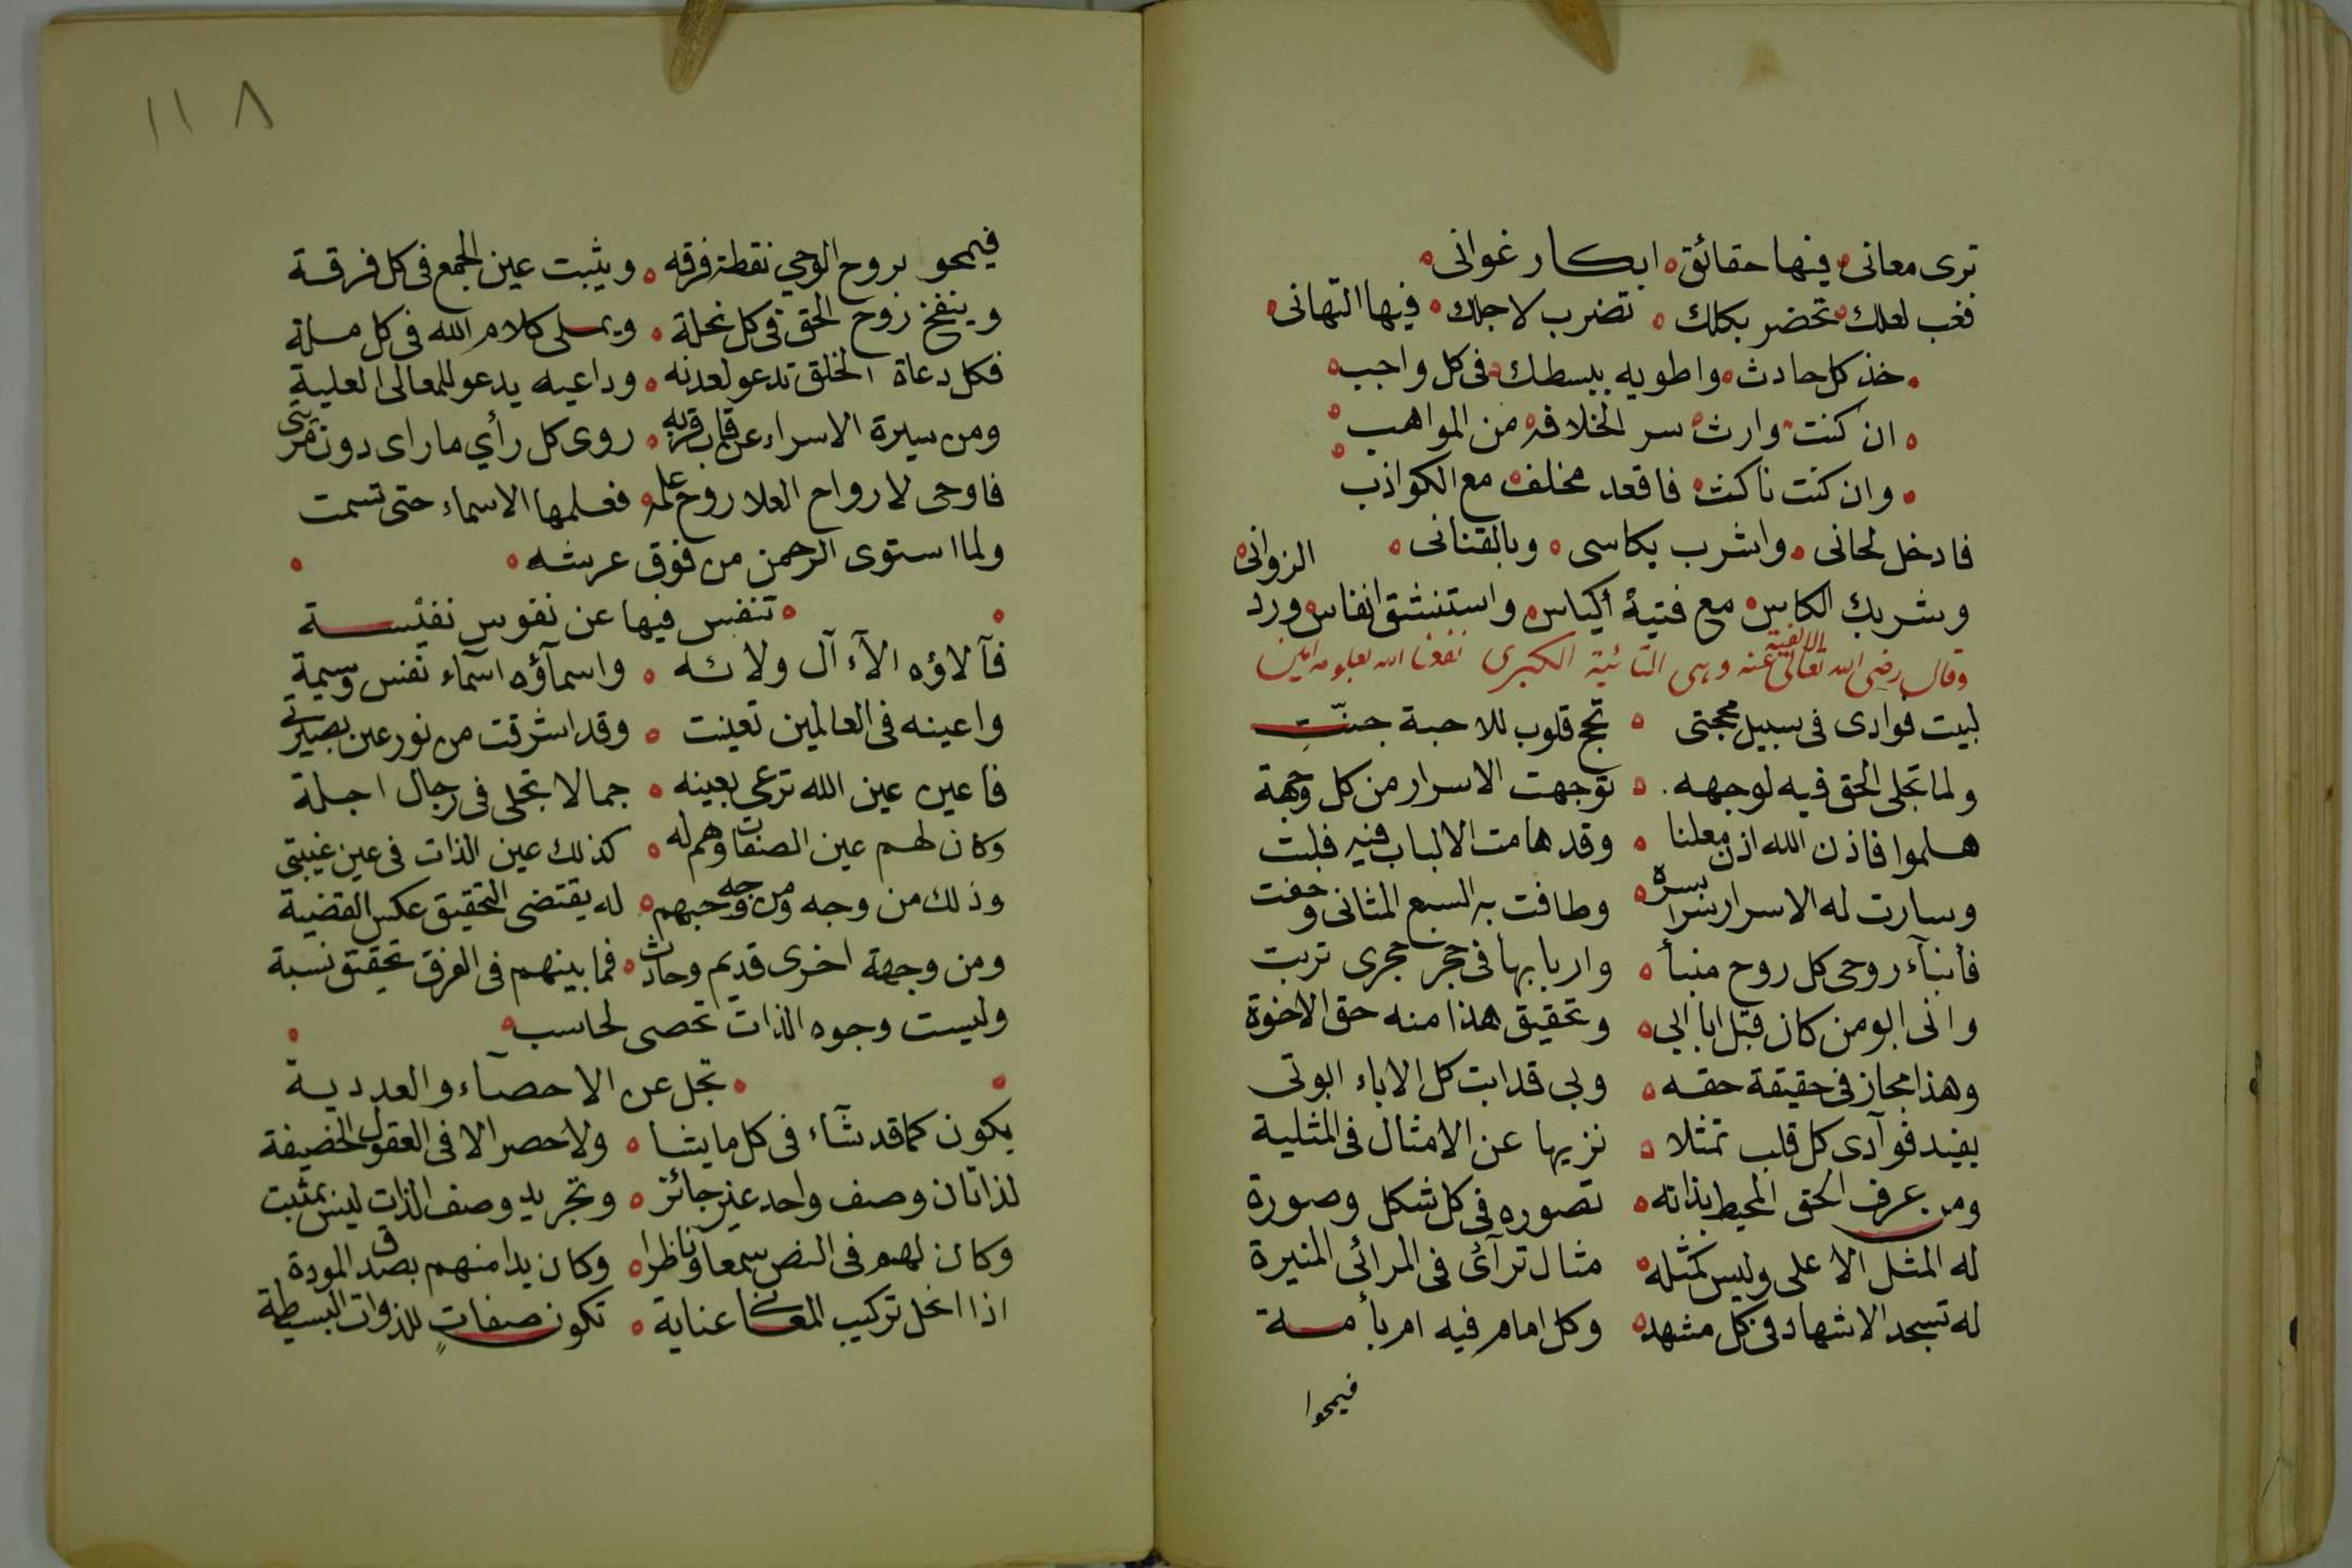 ترى معانى ه فيها حقائق ه ابكار غوانى ه
فغب لعلك ه تحضر بكلك ه تضرب لاجلك ه فيها التهانى ه
ه خذ كل حادث ه واطويه ببسطك ه فى كل واجب ه
ه ان كنت وارث ه سر الخلافه ه من المواهب ه
ه وان كنت ناكث ه فاقعد مخلف ه مع الكواذب ه
فادخل لحانى ه واشرب بكاسى ه وبالقنانى ه
وشربك الكاس ه مع فتية أكياس ه واستنشق انفاس ه ورد الزوانى ه
وقال رضى الله تعالى عنه وهى التائية الكبرى نفعنا الله بعلومه امين
لبيت فوادى فى سبيل محجتى ه تحج قلوب للاحبة جنّتِ
ولما تجلى الحق فيه لوجهه ه توجهت الاسرار من كل وجهة
هلموا فاذن الله اذن معلنا ه وقد هامت الالباب فيه فلبت
وسارت له الاسرار سرا بسره ه وطافت به السبع المثانى وحفت
فأنبآء روحى كل روح منبأ ه واربابها فى حجر حجرى تربت
وانى ابو من كان قبل ابا ابي ه وتحقيق هذا منه حق الاخوة
وهذا مجاز فى حقيقة حقه ه وبى قد ابت كل الاباء ابوتى
يفيد فوآدى كل قلب تمثلا ه نزيها عن الامثال فى المثلية
ومن عرف الحق المحيط بذاته ه تصوره فى كل شكل وصورة
له المثل الاعلى وليس كمثله ه مثال ترآئ فى المرائى المنيرة
له تسجد الاشهاد فى كل مشهد ه وكل امام فيه ام بأمـة
فيمحوا
١١٨
فيمحو بروح الوحي نقطة فرقه ه ويثبت عين الجمع فى كل فرقـة
وينفخ روح الحق فى كل نحلة ه ويملى كلام الله فى كل مـلة
فكل دعاة الخلق تدعو لعدنه ه وداعيه يدعو للمعالى العلية
ومن سيرة الاسراء عن قاب قربه ه روى كل رأي ما راى دون مريتى
فاوحى لارواح العلا روح علمه ه فعلمها الاسماء حتى تسمت
ولما استوى الرحمن من فوق عرشه ه
ه تنفس فيها عن نفوس نفيسـة
فآلاؤه الآء آل ولائه ه واسمآؤه اسمآء نفس وسيمة
واعينه فى العالمين تعينت ه وقد اشرقت من نور عين بصيرتى
فاعين عين الله ترعى بعينه ه جمالا تجلى فى رجال اجلة
وكان لهم عين الصفات وهم له ه كذلك عين الذات فى عين غيبتى
وذلك من وجه ومن وجه حبهم ه له يقتضى التحقيق عكس القضية
ومن وجهة اخرى قديم وحادث ه فما بينهم فى الفرق تحقيق نسبة
وليست وجوه الذات تحصى لحاسب ه
ه تجل عن الاحصآء والعددية
يكون كما قد شآء فى كل ما يشا ه ولا حصر الا فى العقول الخضيفة
لذاتان وصف واحد غير جائز ه وتجريد وصف الذات ليس بمثبت
وكان لهم فى النص سمعا وناظرا ه وكان يدا منهم بصدق المودة
اذا انحل تركيب المعانى عناية ه تكون صفاتٍ للذوات البسيطة